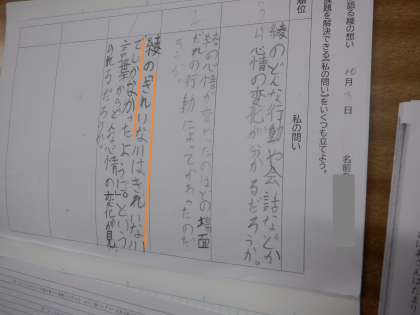 語る綾の想い
課題を解決できる【私の問い】をいくつも立てよう。
10月
日
名前
順位
私の問い
綾のどんな行動や会話などか
ら心情の変化が分かるだろうか。
綾の心情が変わったのはどの場面
だれの行動によってかわったのだ
ろうか。
綾の「きれいな川はきれいな川
でしかなかったように。」という
言葉からどんな心情の変化が見
られるだろうか。